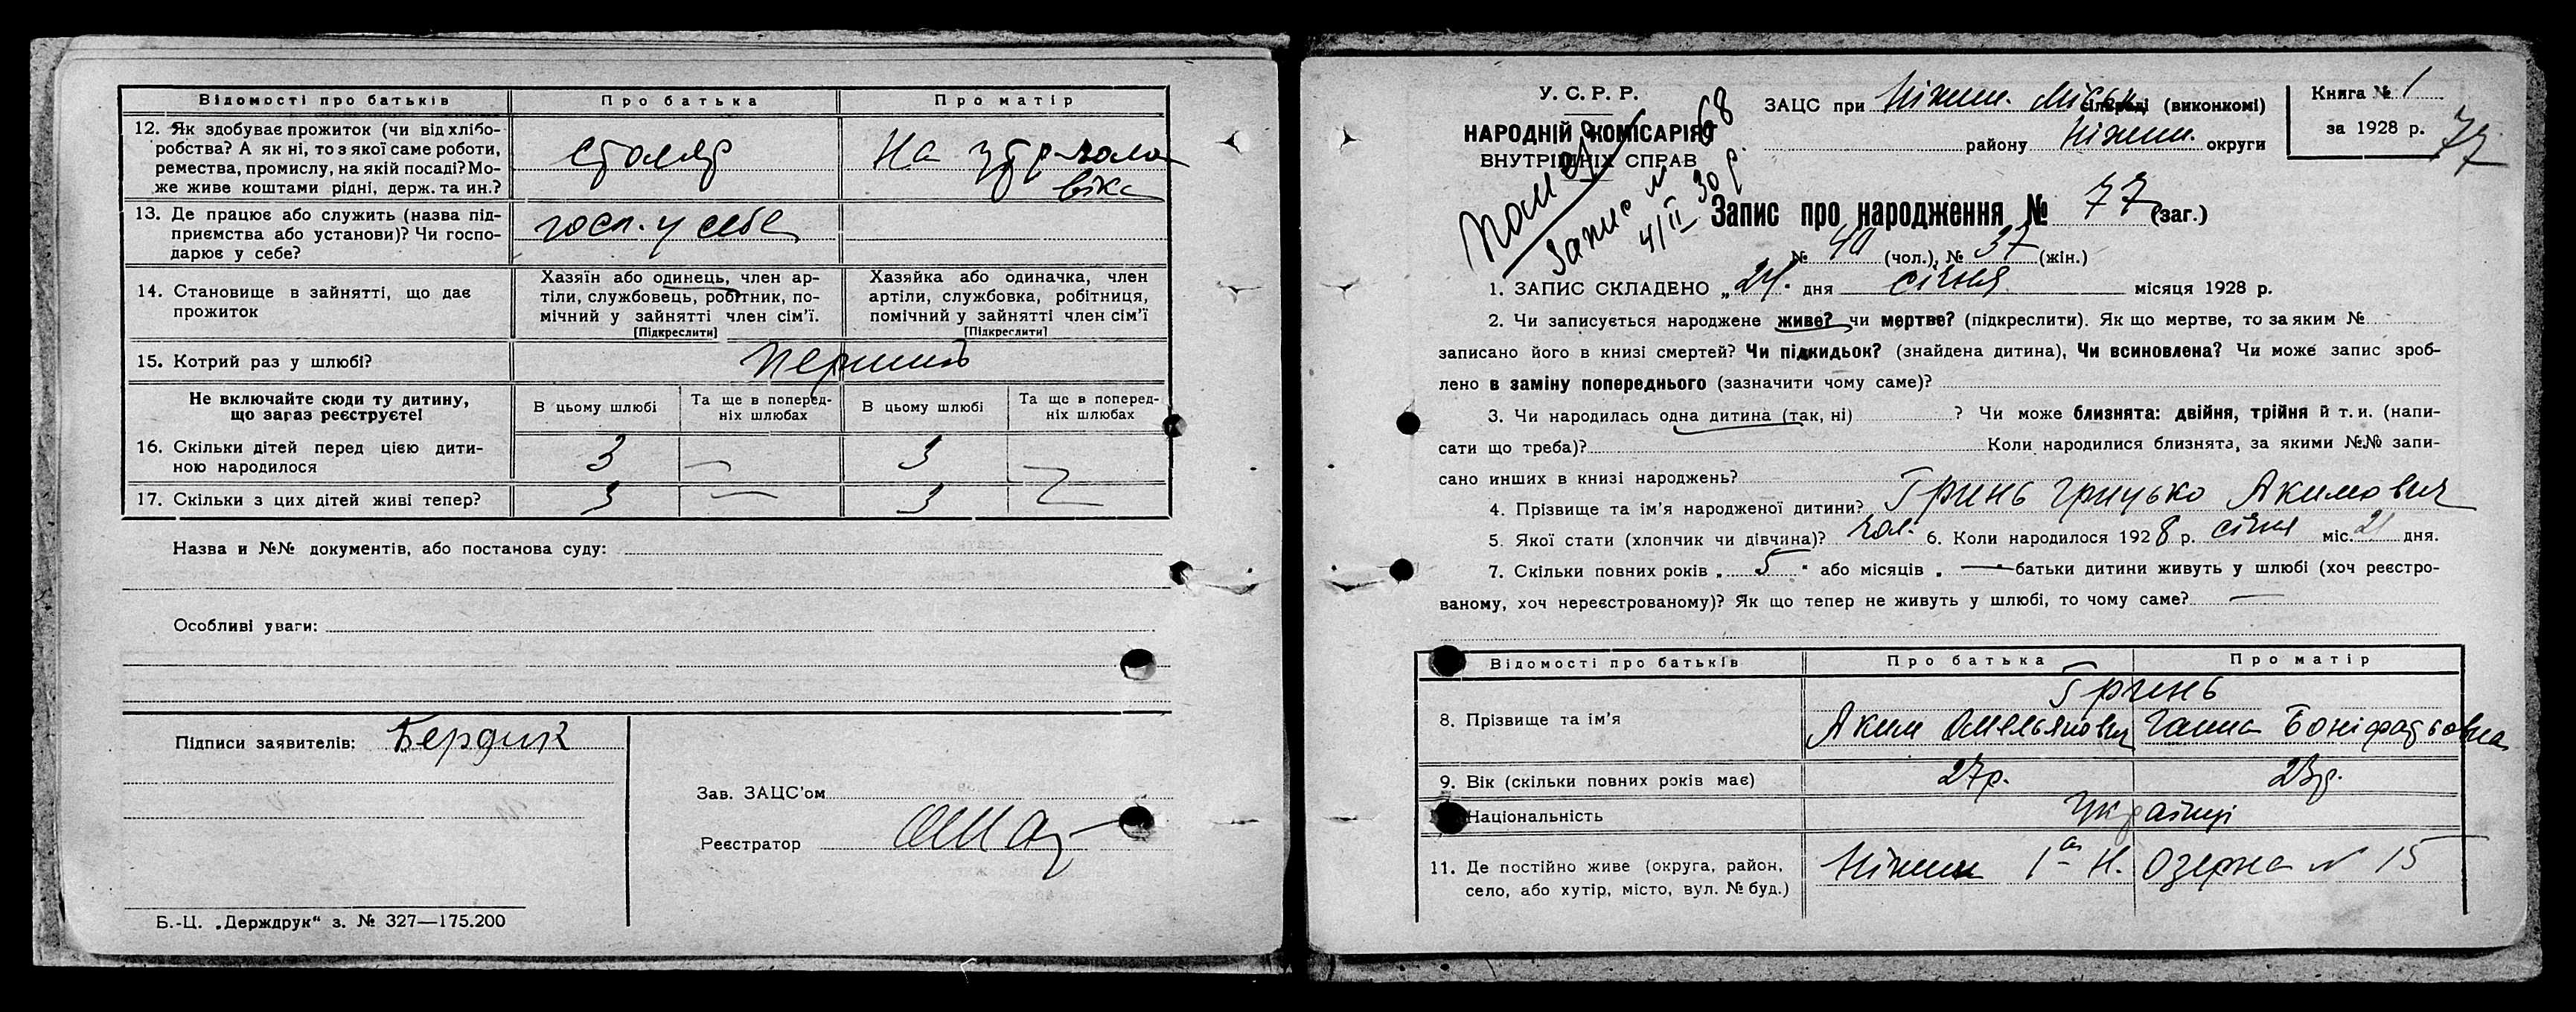 Відомості про батьків Про батька Про матір
12. Як здобуває прожиток (чи від хлібо-
робства? А як ні, то з якої саме роботи,
ремества, промислу, на якій посаді? Мо-
же живе коштами рідні, держ. та ин.?
столяр
На утр. чоло
віка
13. Де працює або служить (назва під-
приємства або установи)? Чи госпо-
дарює у себе?
госп. у себе
14. Становище в зайнятті, що дає
прожиток
Хазяїн або одинець, член ар-
тіли, службовець, робітник, по-
мічний у зайнятті член сім'ї.
[Підкреслити]
Хазяйка або одиначка, член
артіли, службовка, робітниця,
помічний у зайнятті член сім'ї
[Підкреслити]
15. Котрий раз у шлюбі? першій
Не включайте сюди ту дитину,
що зараз реєструєте!
В цьому шлюбі
Та ще в поперед-
ніх шлюбах
В цьому шлюбі
Та ще в поперед-
ніх шлюбах
16. Скільки дітей перед цією дити-
ною народилося
3 — 3 —
17. Скільки з цих дітей живі тепер? 3 — 3 —
Назва и №№ документів, або постанова суду:
Особливі уваги:
Підписи заявителів: Бердик
Зав. ЗАЦС'ом
Реєстратор
Б.-Ц. „Держдрук“ з. № 327—175.200
У. С. Р. Р.
НАРОДНІЙ КОМІСАРІЯТ
ВНУТРІШНІХ СПРАВ
Помер
Запис № 68
4/II 30 р.
ЗАЦС при Ніжин. Міськ сільраді (виконкомі)
району Ніжин. округи
Книга № 1
за 1928 р.
77
Запис про народження № 77 (заг.)
№ 40 (чол.), № 37 (жін.)
1. ЗАПИС СКЛАДЕНО „24. дня січня місяця 1928 р.
2. Чи записується народжене живе? чи мертве? (підкреслити). Як що мертве, то за яким №
записано його в книзі смертей? Чи підкидьок? (знайдена дитина), Чи всиновлена? Чи може запис зроб-
лено в заміну попереднього (зазначити чому саме)?
3. Чи народилась одна дитина (так, ні) ? Чи може близнята: двійня, трійня й т. и. (напи-
сати що треба)? Коли народилися близнята, за якими №№ запи-
сано инших в книзі народжень?
4. Прізвище та ім'я народженої дитини? Гринь Грицько Акимович
5. Якої стати (хлопчик чи дівчина)? чол. 6. Коли народилося 1928 р. січня міс. 21 дня.
7. Скільки повних років „ 5 “ або місяців „ — “ батьки дитини живуть у шлюбі (хоч реєстро-
ваному, хоч нереєстрованому)? Як що тепер не живуть у шлюбі, то чому саме? —
Відомості про батьків Про батька Про матір
Гринь
8. Прізвище та ім'я Аким Омельянович Ганна Боніфатьовна
9. Вік (скільки повних років має) 27р. 23р.
Національність Українці
11. Де постійно живе (округа, район,
село, або хутір, місто, вул. № буд.)
Ніжин 1а Н. Озерна № 15